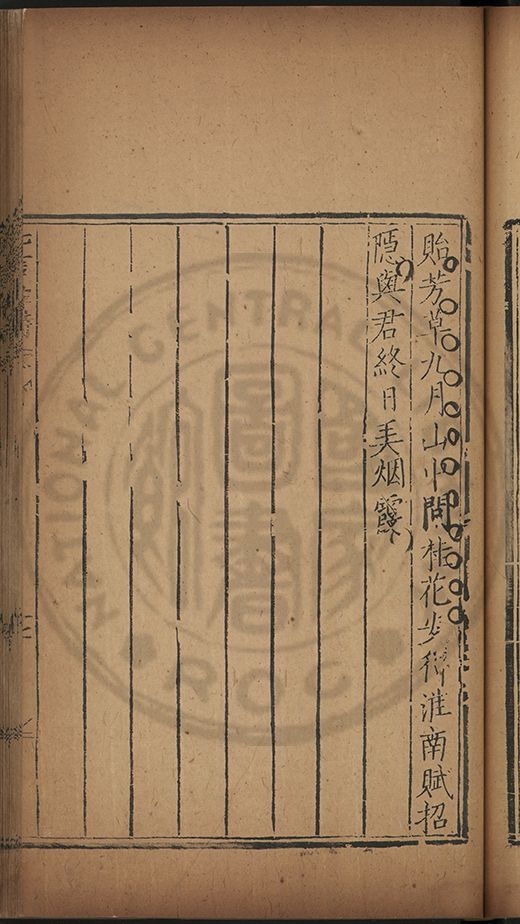 貽芳草九月山中問桂花步從淮南賦招
隱與君終日美烟霞